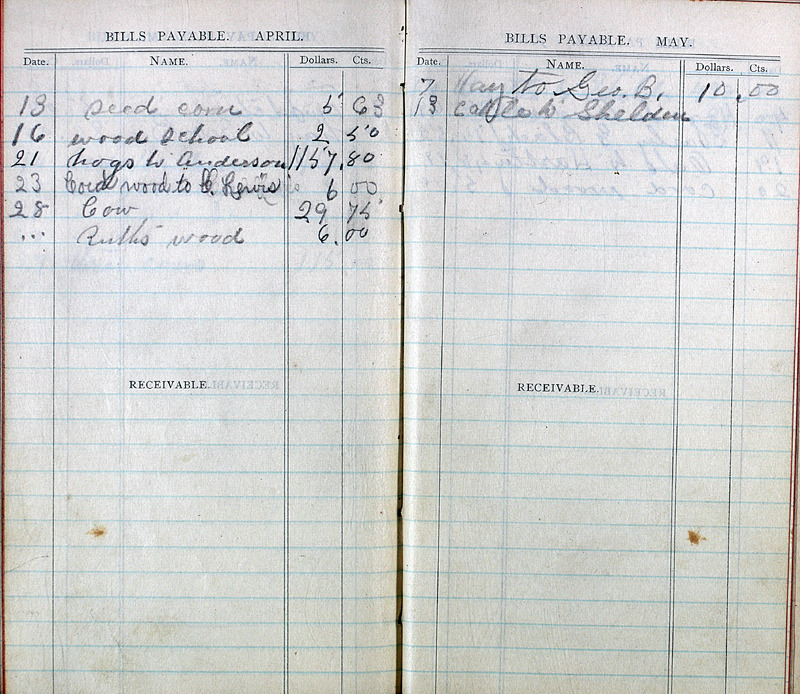 BILLS PAYABLE. APRIL.
Date. NAME. Dollars. Cts.
13 seed corn 5 63
16 wood school 2 50
21 hogs to Anderson 115 7.80
23 Cord wood to C. Lewis 6 00
28 Cow 29 75
... Ruths wood 6.00
RECEIVABLE.
BILLS PAYABLE. MAY.
Date. NAME. Dollars. Cts.
7 Hay to Geo. B. 10.00
13 Cattle to Shelden
RECEIVABLE.